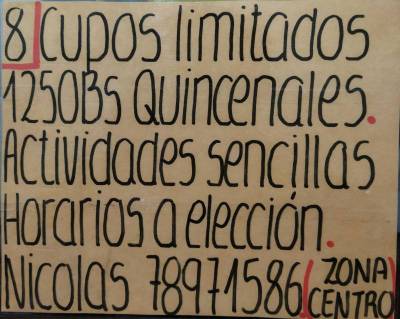 8 Cupos limitados
1250Bs Quincenales.
Actividades sencillas
Horarios a elección.
Nicolas 78971586 (ZONA CENTRO)